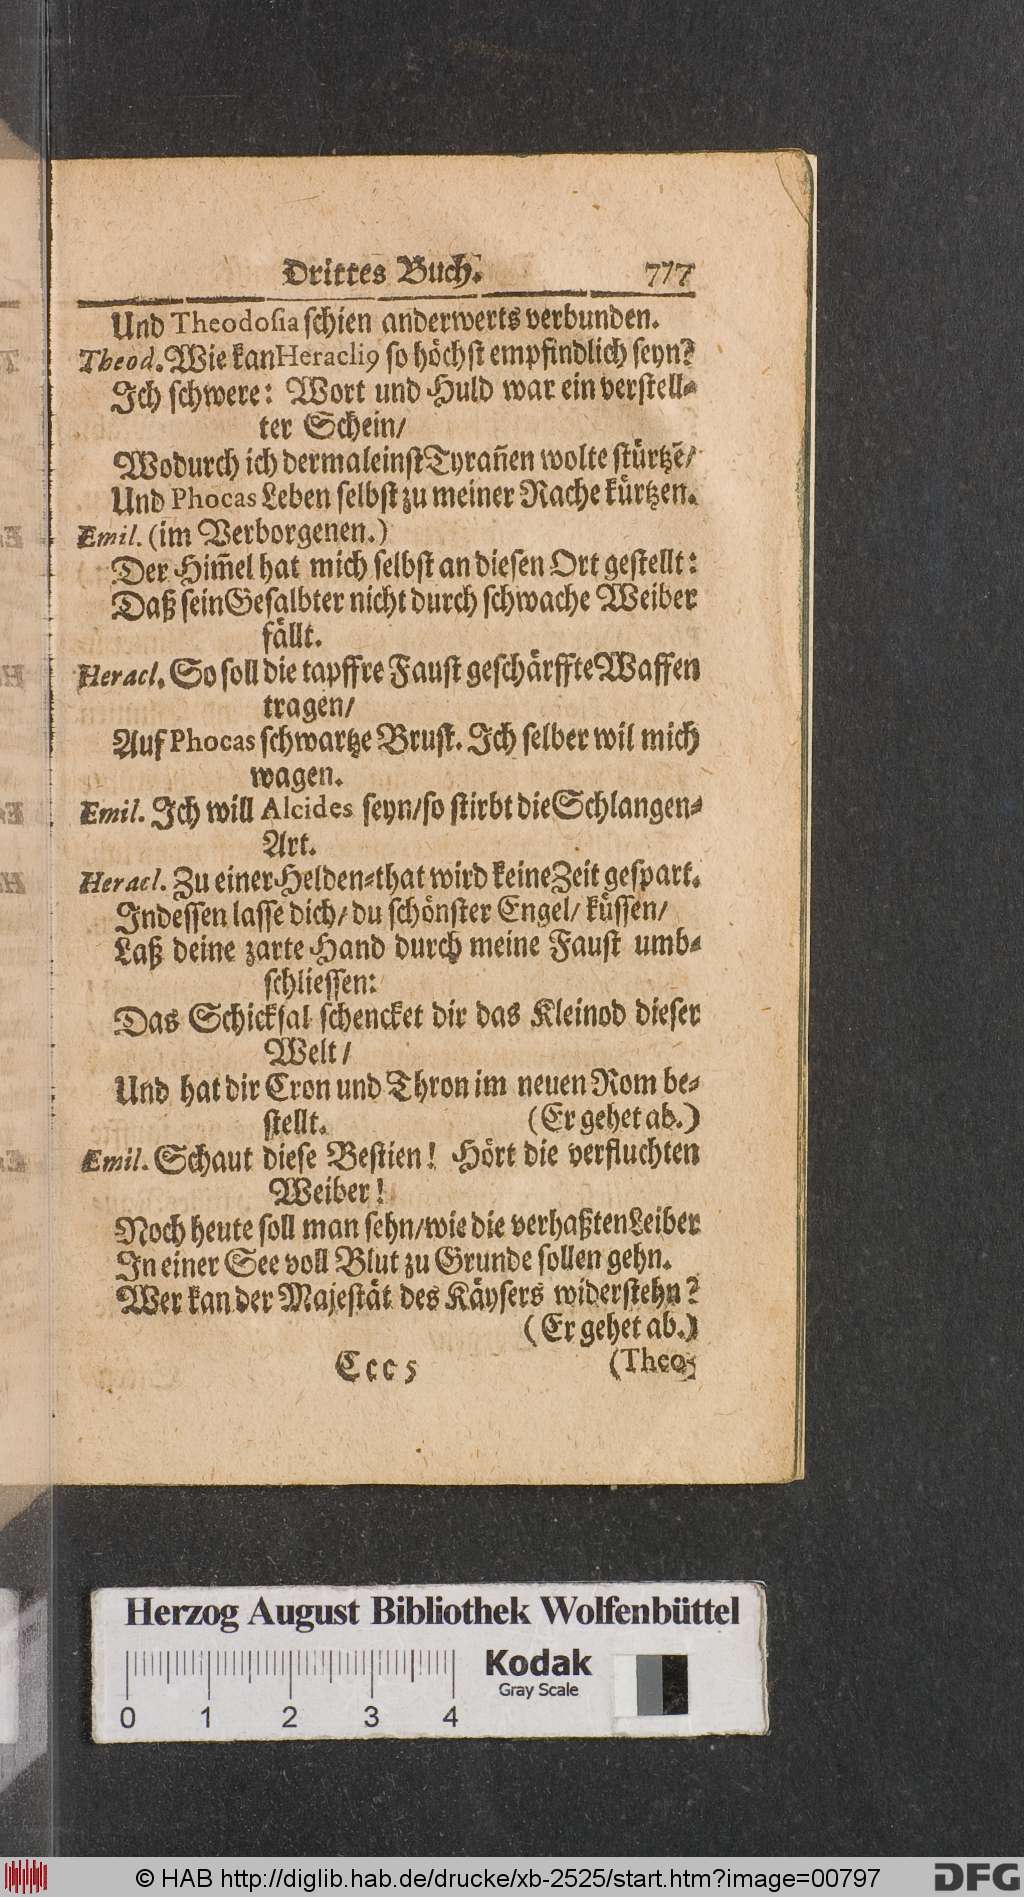 Drittes Buch. 777
Und Theodosia schien anderwerts verbunden.
Theod. Wie kan Heracliꝰ so höchst empfindlich seyn?
Ich schwere: Wort und Huld war ein verstell-
ter Schein/
Wodurch ich dermaleinst Tyrañen wolte stürtzẽ/
Und Phocas Leben selbst zu meiner Rache kürtzen.
Emil. (im Verborgenen.)
Der Him̃el hat mich selbst an diesen Ort gestellt:
Daß sein Gesalbter nicht durch schwache Weiber
fällt.
Heracl. So soll die tapffre Faust geschärffte Waffen
tragen/
Auf Phocas schwartze Brust. Ich selber wil mich
wagen.
Emil. Ich will Alcides seyn/ so stirbt die Schlangen-
Art.
Heracl. Zu einer Helden-that wird keine Zeit gespart.
Indessen lasse dich/ du schönster Engel/ küssen/
Laß deine zarte Hand durch meine Faust umb-
schliessen:
Das Schicksal schencket dir das Kleinod dieser
Welt/
Und hat dir Cron und Thron im neuen Rom be-
stellt. (Er gehet ab.)
Emil. Schaut diese Bestien! Hört die verfluchten
Weiber!
Noch heute soll man sehn/ wie die verhaßten Leiber
In einer See voll Blut zu Grunde sollen gehn.
Wer kan der Majestät des Käysers widerstehn?
(Er gehet ab.)
Ccc 5 (Theo-
Herzog August Bibliothek Wolfenbüttel
Kodak
Gray Scale
0 1 2 3 4
© HAB http://diglib.hab.de/drucke/xb-2525/start.htm?image=00797 DFG